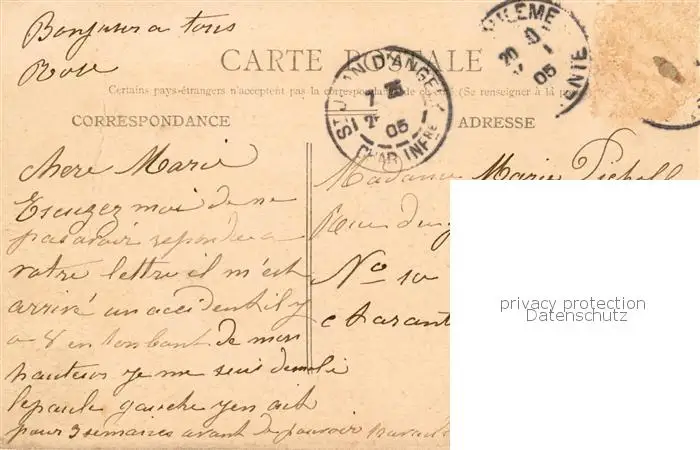 Bonjour a tous
Rose
CARTE POSTALE
Certains pays étrangers n'acceptent pas la correspondance de ce côté (Se renseigner à la p
CORRESPONDANCE
ADRESSE
ST JEAN D'ANGELY
7
2
05
CHAR. INFRE
20
05
chere Marie
Escugez moi de ne
pas avoir repondre a
votre lettre il m'est
arrivé un accident il y
a 8 en tonbant de mon
hauteur je me suis demli
lepaule gauche yen ait
pour 3 semaines avant de pouvoir
Madame Marie
Rue du
No 10
charant
privacy protection
Datenschutz